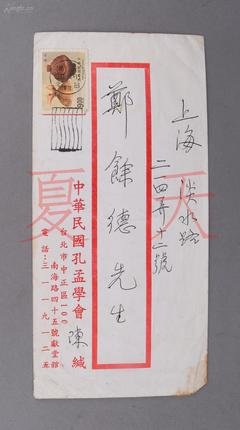 上海 淡水路
二一四弄十二號
鄭餘德先生
中華民國孔孟學會 陳 緘
台北市中正區100
南海路四十五號獻堂館
電話：三一一九一二五
夏天